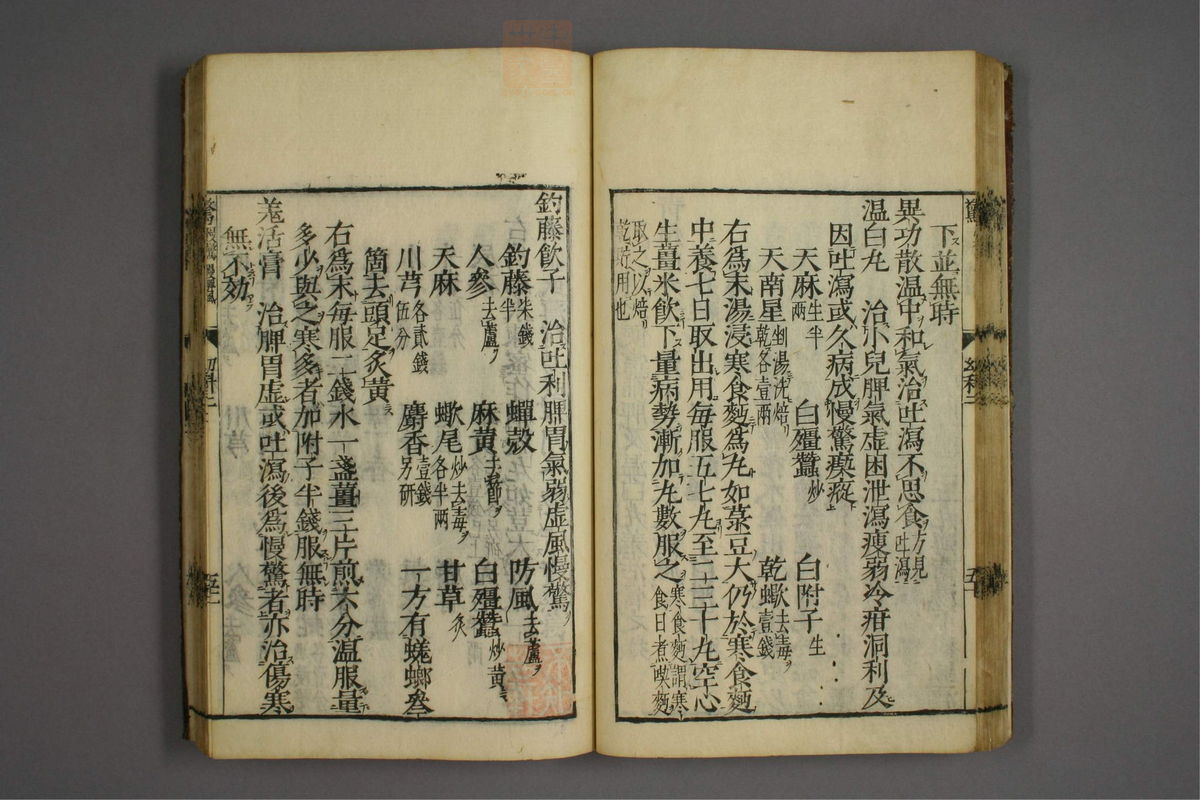 下並無時
異功散温中和氣治吐瀉不思食方見吐瀉
温白丸　治小兒脾氣虚困泄瀉瘦弱冷疳洞利及
因吐瀉或久病成慢驚瘈瘲
天麻生半兩　白殭蠶炒　白附子生
天南星剉湯洗焙乾各壹兩　乾蠍去毒壹錢
右為末湯浸寒食麪為丸如菉豆大仍於寒食麪
中養七日取出用毎服五七丸至二三十丸空心
生薑米飲下量病勢漸加丸數服之寒食麪謂寒食日煮喫麪
取之以焙乾用也
釣藤飲子　治吐利脾胃氣弱虚風慢驚
釣藤柒錢半　蟬殼　防風去蘆
人參去蘆　麻黄去節　白殭蠶炒黄
天麻　蠍尾炒去毒各半兩　甘草炙
川芎各貳錢伍分　麝香壹錢另研　一方有蜣螂叁
箇去頭足炙黄
右為末毎服二錢水一盞薑三片煎木分温服量
多少與之寒多者加附子半錢服無時
羗活膏　治脾胃虚或吐瀉後為慢驚者亦治傷寒
無不効
幼科二